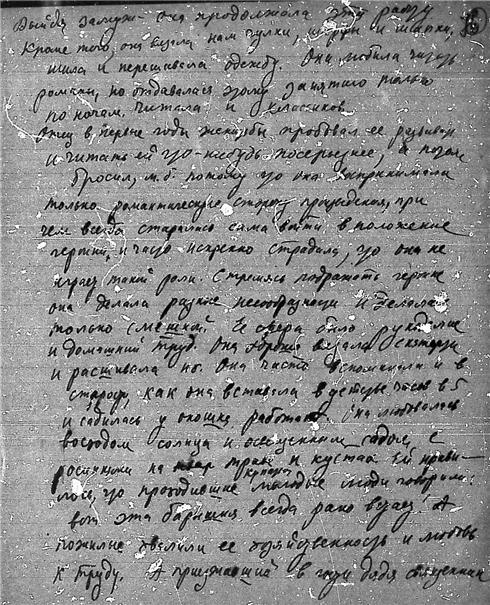 Выйдя замуж она продолжала эту работу
Кроме того, она вязала нам чулки, шарфы и шапки,
шила и перешивала одежду. Она любила читать
романы, но отдавалась этому занятию только
по ночам. Читала и классиков.
Отец в первые годы женитьбы пробовал ее развивать
и читать ей что-нибудь посерьезнее, а потом
бросил, м.б. потому что она воспринимала
только романтическую сторону произведения, при
чем всегда старалась сама войти в положение
героини, и часто искренно страдала, что она не
играет такой роли. Стремясь подражать героине
она делала разные несообразности и делалась
только смешной. Ее сфера было рукоделие
и домашний труд. Она хорошо вязала скатерти
и расшивала их. Она часто вспоминала и в
старости как она вставала в четыре часа в 5
и садилась у окошка работать. Она любовалась
восходом солнца и освещенным садом, с
росинками на траве и кустах. Ей нрави-
лось, что проходившие молодые люди говорили:
вот эта барышня всегда рано встает. А
пожилые хвалили ее хозяйственность и любовь
к труду. А приезжавший в гости дядя священник